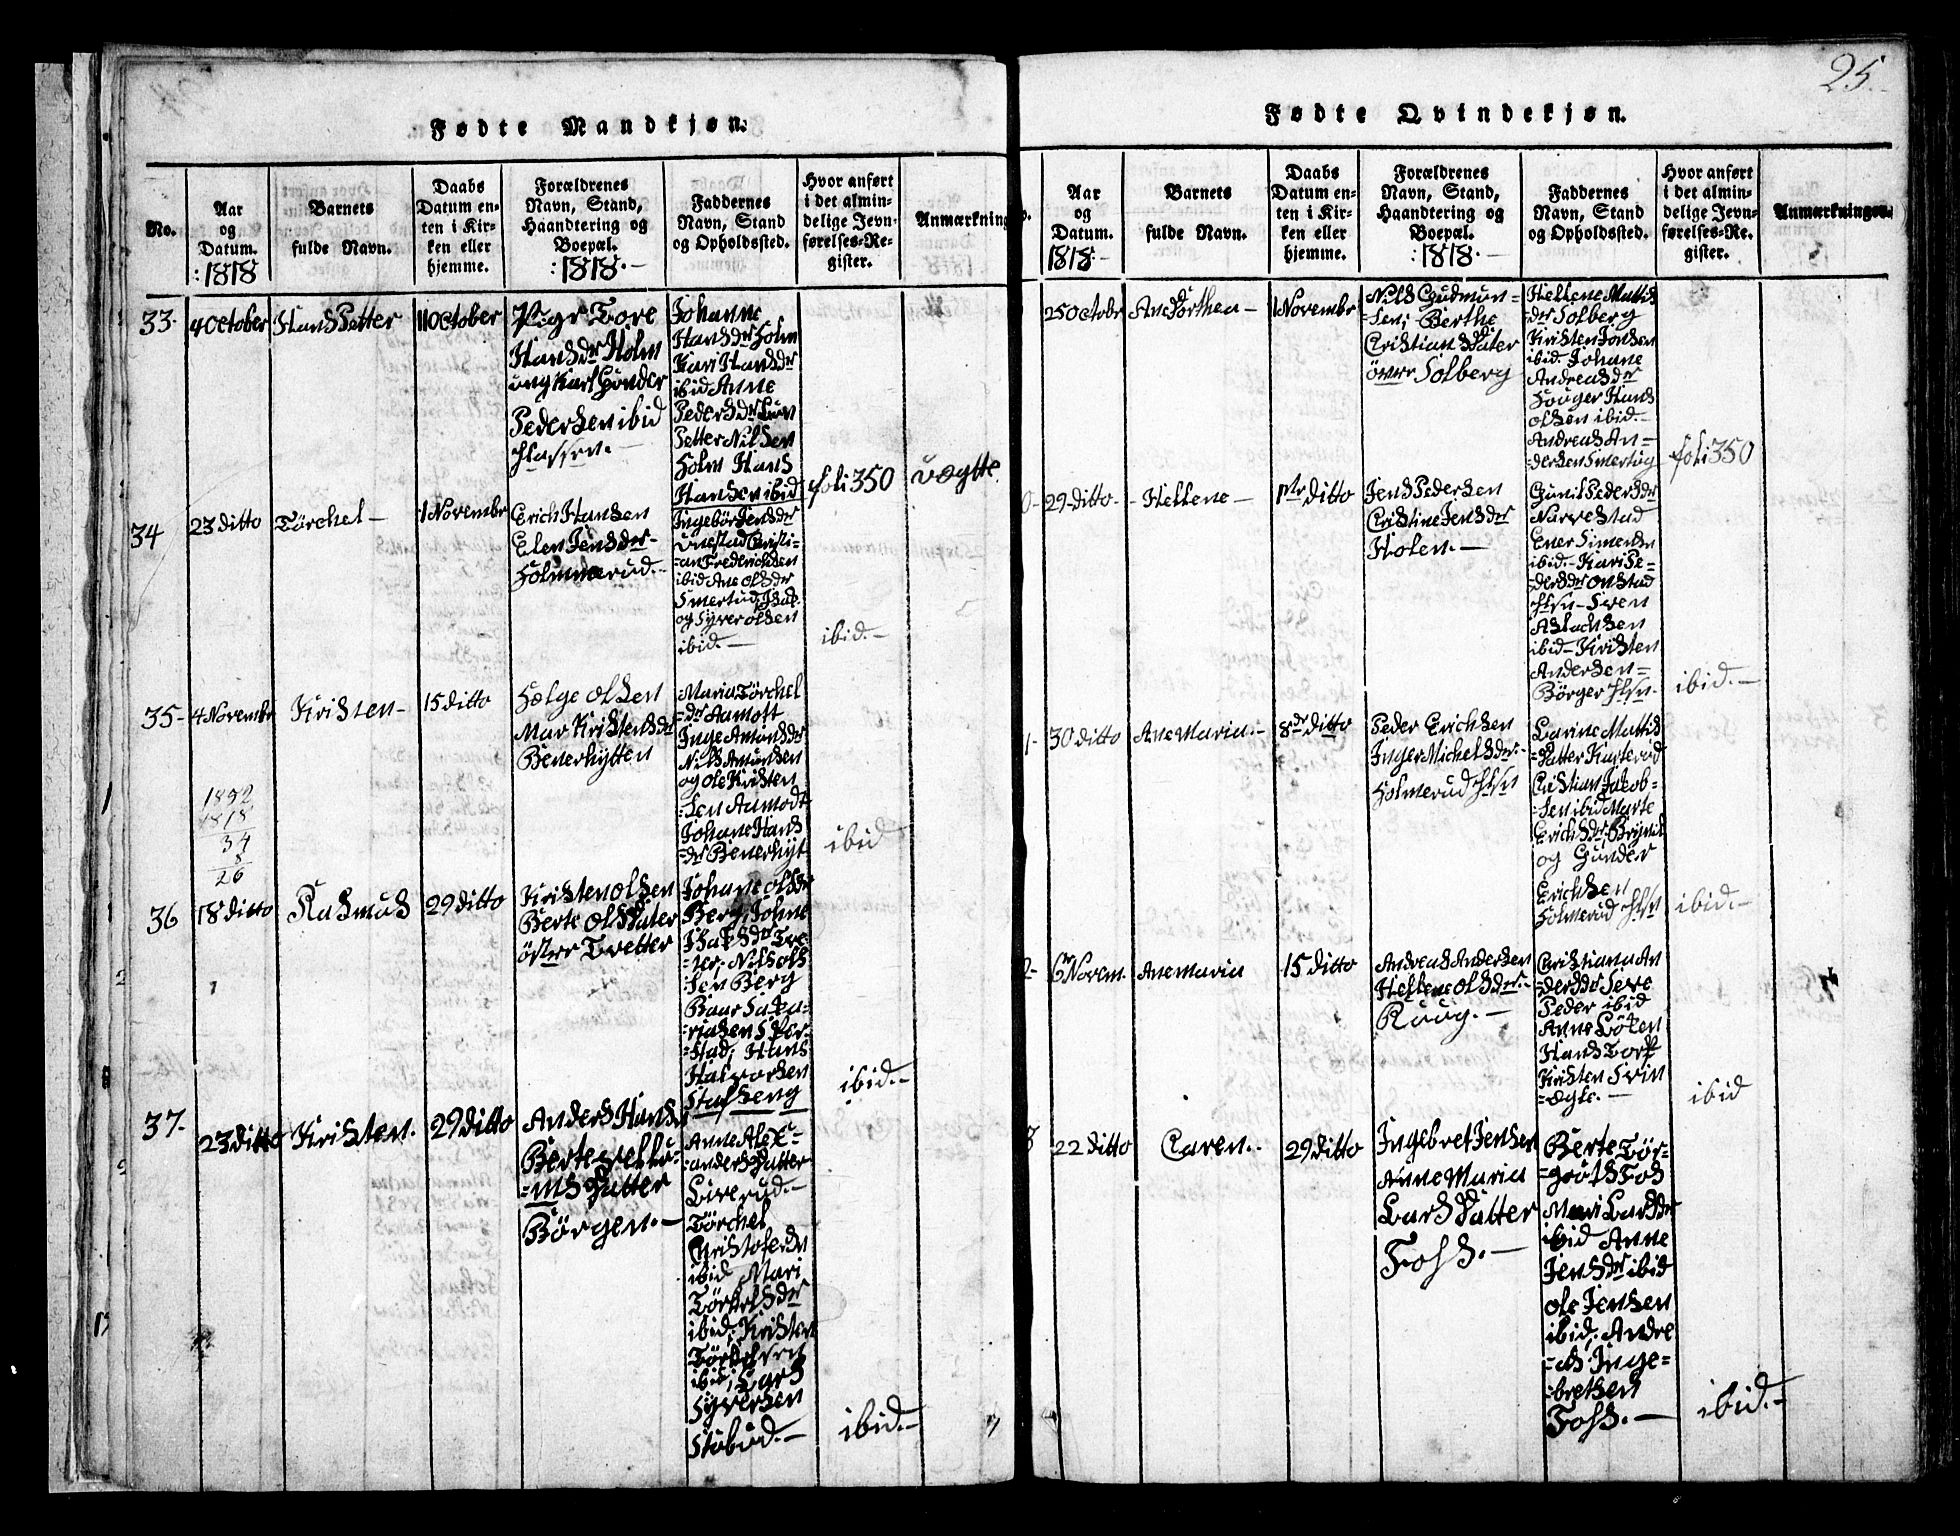 25.
Fødte Mandkjøn.
No.
Aar
og
Datum.
1818
Barnets
fulde Navn.
Daabs
Datum en-
ten i Kir-
ken eller
hjemme.
Forældrenes
Navn, Stand,
Haandtering og
Boepæl.
:1818.-
Faddernes
Navn, Stand
og Opholdssted.
Hvor anført
i det almin-
delige Jevn-
førelses-Re-
gister.
Anmærkning
33.
4 October
Hans Petter
11 October
Pige Tore
Hansdr Holm
ung Karl Gunder
Pedersen ibid
Johanne
Hansdr Holm
Kari Hansdr
ibid Anne
Pedersdr
Petter Nilsen
Holm Hans
Hansen ibid
foli 350
34
23 ditto
Törchel-
1 Novembr
Erich Hansen
Elen Jensdr-
Holmmerud.-
Ingebör Jensdr
Unestad Cristi-
=an Fredrichsen
ibid Ane Olsdr
Smertud,
og Syver Olsen
ibid.-
ibid.-
35-
4 Novembr
Kristen-
15 ditto
Helge Olsen
Mar Kristensdr
Beverhytten
Maria Törchel
=dr Aamott
Inge Amunsdr
Nils Amunsen
og Ole Kristen
=sen Aamodt
Johane Hans
=dr Beverhyt
ibid
1852
1818
34
8
26
36
18 ditto
Rasmus
29 ditto
Kristen Olsen
Berte Olsdater
öster Tvetter
Johane Olsdr
Berg, Johne
Isaksdr Tve-
=ter, Nils Ols
=sen Berg
Baar Saka-
=riasen
=stad, Hans
Halvorsen
Stafseng
ibid.-
37.
23 ditto
Kristen.
29 ditto
Anders Hansen
Berte Vellu-
=ms Datter
Börgen.-
Anne Alex-
=anders Datter
Liverud.-
Törchel
Cristofersen
ibid, Mari
Törkelsdr
ibid, Kristen
ibid, Lars
Syversen
Stubud.-
ibid.-
Fødte Qvindekjøn.
Aar
og
Datum.
1818.-
Barnets
fulde Navn.
Daabs
Datum en-
ten i Kir-
ken eller
hjemme.
Forældrenes
Navn, Stand,
Haandtering og
Boepæl.
:1818.-
Faddernes
Navn, Stand
og Opholdssted.
Hvor anført
i det almin-
delige Jevn-
førelses-Re-
gister.
Anmærkninger.
25 Octobr
Ane Dorthea-
1 Novembr
Nils Gudmun-
=sen, Berthe
Cristians Dater
övre Solberg
Hellene Mattis
=dr Solberg
Kristen Jonsen
ibid. Johane
Andreasdr
Houger Hans
Olsen ibid.-
Andreas An-
=dersen Smertug
foli 350
29 ditto-
-Hellene-
1ste ditto
Jens Pedersen
Cristine Jensdr
Holen.-
Gunil Pedersdr
Narvestad
Ener Simensen
ibid.- Kari Pe-
=dersdr Onstad
Sven
Aslachsen
ibid- Kristen
Andersen-
Börger
ibid.-
30 ditto
Ane Maria.-
8de ditto
Peder Erichsen
Inger Michelsdr.-
Holmerud
Larine Mattis
Datter Karterud
Cristian Jakob-
=sen ibid Marte
Erichsdr
og Gunder
Erichsen
Holmerud
ibid.-
6 Novem.
Ane Maria
15 ditto
Andreas Andersen
Hellene Olsdr.-
Ruug.-
Cristiana An
=dersdr
Peder ibid
Anne Löken
Hans Torp
Kristen Svin
=degle.-
ibid
22 ditto
Caren.-
29 ditto
Ingebret Jensen
Anne Maria
Lars Datter
Foss.-
Berte Tör-
=gruts Fos
Mari Larsdr
ibid Anne
Jensdr ibid
Ole Jensen
ibid, Andre
=as Inge-
=bretsen
Foss.-
ibid.-